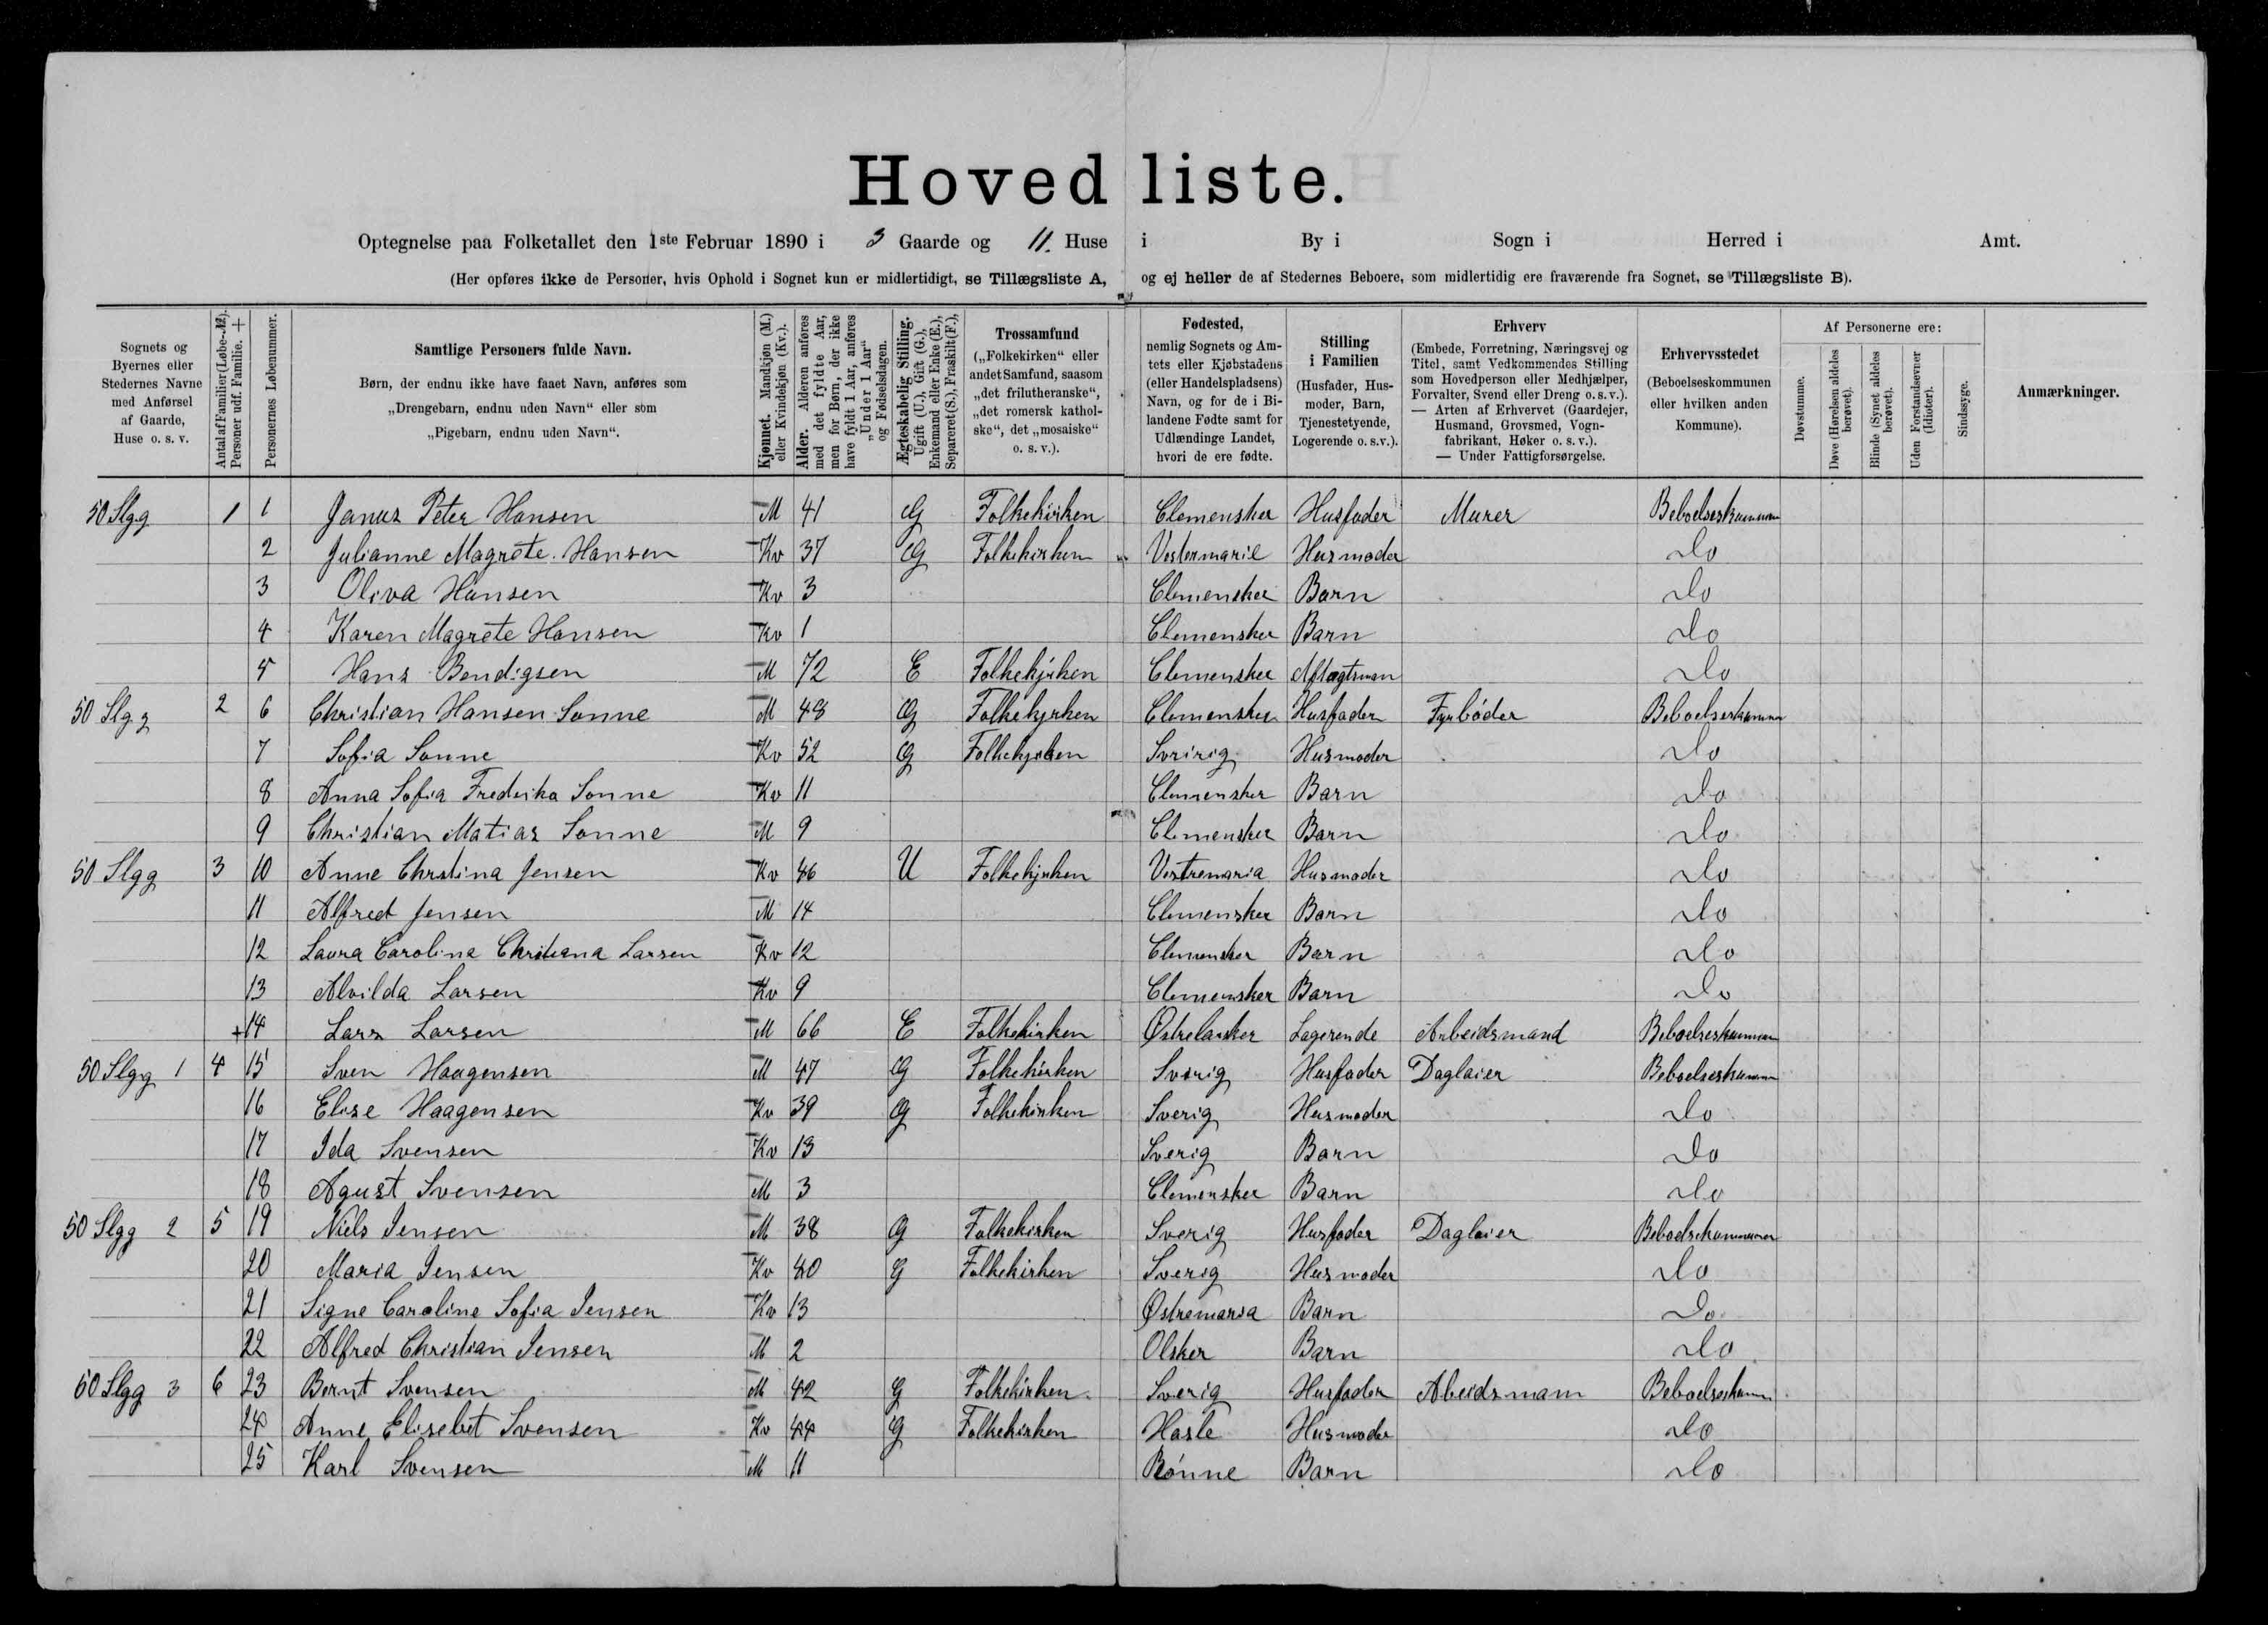 Hovedliste.
Optegnelse paa Folketallet den 1ste Februar 1890 i 3 Gaarde og 11. Huse i By i Sogn i Herred i Amt.
(Her opføres ikke de Personer, hvis Ophold i Sognet kun er midlertidigt, se Tillægsliste A, og ej heller de af Stedernes Beboere, som midlertidig ere fraværende fra Sognet, se Tillægsliste B).
Sognets og Byernes eller Stedernes Navne med Anførsel af Gaarde, Huse o. s. v.
Antal af Familier (Løbe-№). Personer udf. Familie. +
Personernes Løbenummer.
Samtlige Personers fulde Navn.
Børn, der endnu ikke have faaet Navn, anføres som „Drengebarn, endnu uden Navn“ eller som „Pigebarn, endnu uden Navn“.
Kjønnet. Mandkjøn (M.) eller Kvindekjøn (Kv.).
Alder. Alderen anføres med det fyldte Aar, men for Børn, der ikke have fyldt 1 Aar, anføres „Under 1 Aar“ og Fødselsdagen.
Ægteskabelig Stilling. Ugift (U.), Gift (G.), Enkemand eller Enke (E.), Separeret (S.), Fraskilt (F.),
Trossamfund („Folkekirken“ eller andet Samfund, saasom „det frilutheranske“, „det romersk katholske“, det „mosaiske“ o. s. v.).
Fødested, nemlig Sognets og Amtets eller Kjøbstadens (eller Handelspladsens) Navn, og for de i Bilandene Fødte samt for Udlændinge Landet, hvori de ere fødte.
Stilling i Familien (Husfader, Husmoder, Barn, Tjenestetyende, Logerende o. s. v.).
Erhverv (Embede, Forretning, Næringsvej og Titel, samt Vedkommendes Stilling som Hovedperson eller Medhjælper, Forvalter, Svend eller Dreng o. s. v.). — Arten af Erhvervet (Gaardejer, Husmand, Grovsmed, Vognfabrikant, Høker o. s. v.). — Under Fattigforsørgelse.
Erhvervsstedet (Beboelseskommunen eller hvilken anden Kommune).
Af Personerne ere:
Døvstumme.
Døve (Hørelsen aldeles berøvet).
Blinde (Synet aldeles berøvet).
Uden Forstandsevner (Idioter).
Sindssyge.
Anmærkninger.
50 Slgg 1 1 Janus Peter Hansen M 41 G Folkekirken Clemensker Husfader Murer Beboelseskummun
2 Julianne Magrete Hansen Kv 37 G Folkekirken Vestermarie Husmoder Do
3 Oliva Hansen Kv 3 Clemensker Barn Do
4 Karen Magrete Hansen Kv 1 Clemensker Barn Do
5 Hans Bendigsen M 72 E Folkekjrken Clemensker Aftagtsman Do
50 Slgg 2 6 Christian Hansen Sonne M 48 G Folkekjrken Clemensker Husfader Fyrbóder
7 Sofia Sonne Kv 52 G Folkekjrken Husmoder Do
8 Anna Sofia Fredrika Sonne Kv 11 Clemensker Barn Do
9 Christian Matias Sonne M 9 Clemensker Barn Do
50 Slgg 3 10 Anne Chrstina Jensen Kv 46 U Folkekjrken Vestremaria Husmoder Do
11 Alfred Jensen M 14 Clemensker Barn Do
12 Laura Carolina Larsen Kv 12 Clemensker Barn Do
13 Alvilda Larsen Kv 9 Clemensker Barn Do
+ 14 Lars Larsen M 66 E Folkekirken Østrelarsker Logerende Arbeidsmand
50 Slgg 1 4 15 Sven Haagensen M 47 G Folkekirken Sverig Husfader Daglaier
16 Elise Haagensen Kv 39 G Folkekirken Sverig Husmoder Do
17 Ida Svensen Kv 13 Sverig Barn Do
18 Agust Svensen M 3 Clemensker Barn Do
50 Slgg 2 5 19 Niels Jensen M 38 G Folkekirken Sverig Husfader Daglaier
20 Maria Jensen Kv 40 G Folkekirken Sverig Husmoder Do
21 Signe Caroline Sofia Jensen Kv 13 Østremaria Barn Do
22 Alfred Christian Jensen M 2 Olsker Barn Do
50 Slgg 3 6 23 Bernt Svensen M 42 G Folkekirken Sverig Husfader Abeidsmam
24 Anne Elisebet Svensen Kv 44 G Folkekirken Hasle Husmoder Do
25 Karl Svensen M 11 Rónne Barn Do